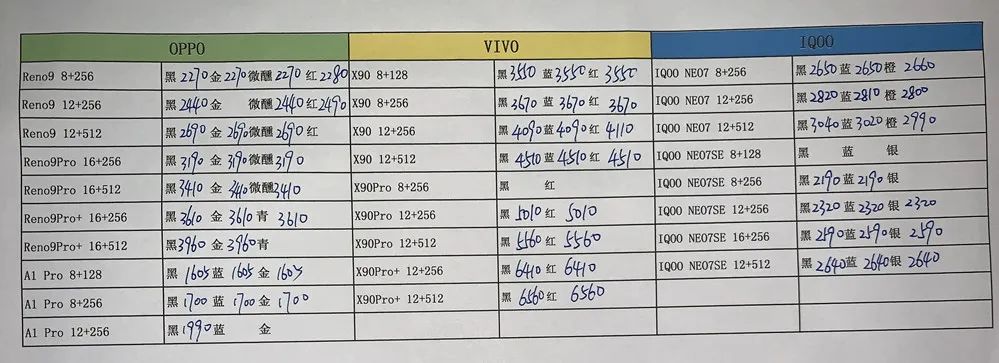 OPPO VIVO IQOO
Reno9 8+256 黑 2270 金 2270 微醺 2270 红 2280 X90 8+128 黑 3550 蓝 3550 红 3550 IQOO NEO7 8+256 黑 2650 蓝 2650 橙 2660
Reno9 12+256 黑 2440 金 微醺 2440 红 2490 X90 8+256 黑 3670 蓝 3670 红 3670 IQOO NEO7 12+256 黑 2820 蓝 2810 橙 2800
Reno9 12+512 黑 2690 金 2690 微醺 2690 红 X90 12+256 黑 4090 蓝 4090 红 4110 IQOO NEO7 12+512 黑 3040 蓝 3020 橙 2990
Reno9Pro 16+256 黑 3190 金 3190 微醺 3190 X90 12+512 黑 4510 蓝 4510 红 4510 IQOO NEO7SE 8+128 黑 蓝 银
Reno9Pro 16+512 黑 3410 金 3410 微醺 3410 X90Pro 8+256 黑 红 IQOO NEO7SE 8+256 黑 2190 蓝 2190 银
Reno9Pro+ 16+256 黑 3610 金 3610 青 3610 X90Pro 12+256 黑 5010 红 5010 IQOO NEO7SE 12+256 黑 2320 蓝 2320 银 2320
Reno9Pro+ 16+512 黑 3960 金 3960 青 X90Pro 12+512 黑 5560 红 5560 IQOO NEO7SE 16+256 黑 2590 蓝 2590 银 2590
A1 Pro 8+128 黑 1605 蓝 1605 金 1605 X90Pro+ 12+256 黑 6410 红 6410 IQOO NEO7SE 12+512 黑 2640 蓝 2640 银 2640
A1 Pro 8+256 黑 1700 蓝 1700 金 1700 X90Pro+ 12+512 黑 6560 红 6560
A1 Pro 12+256 黑 1990 蓝 金